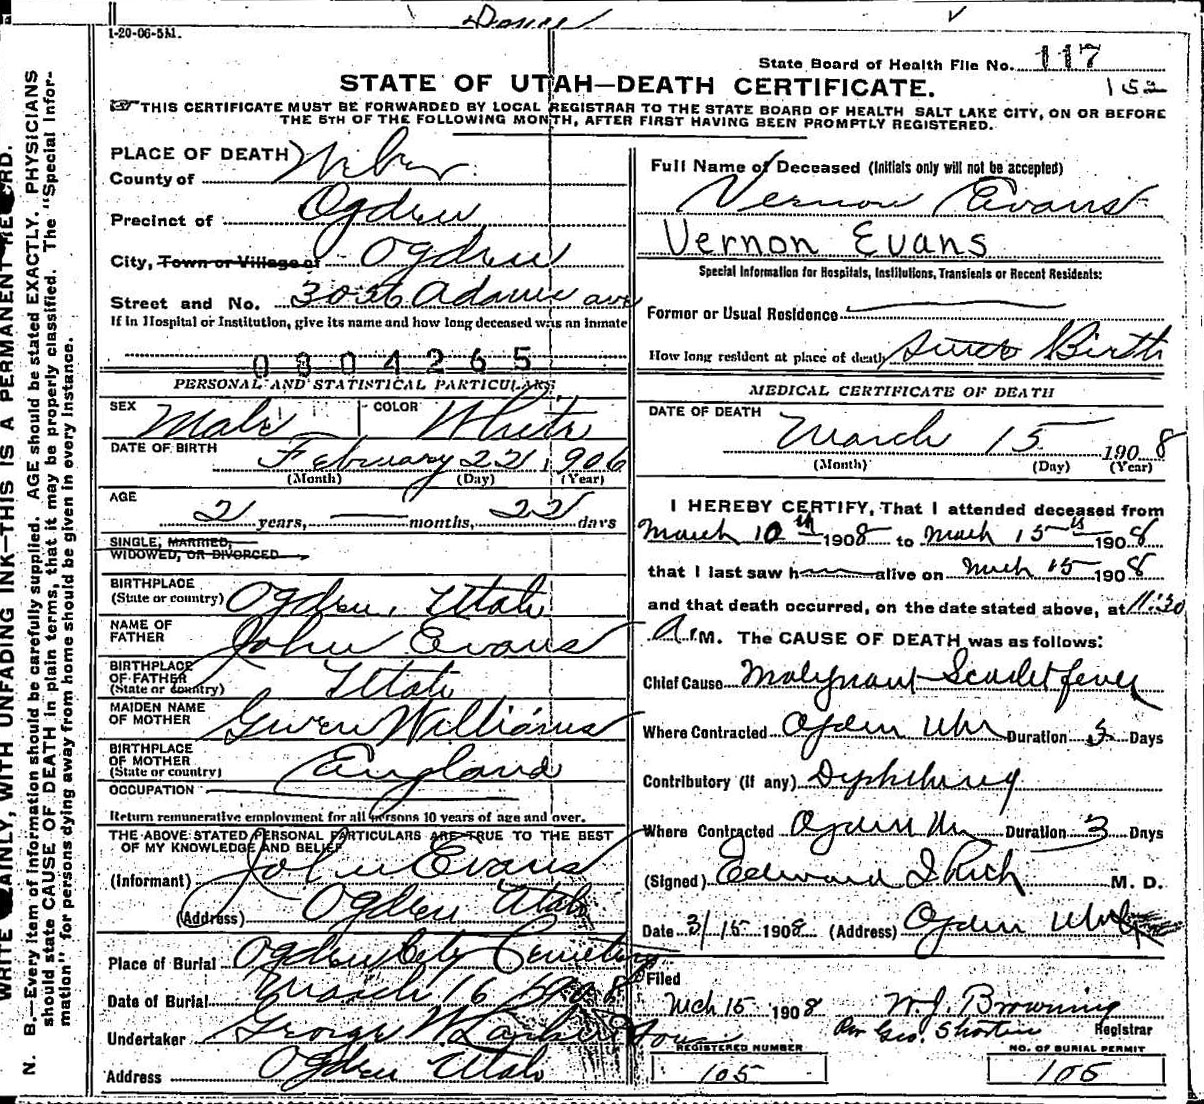 1-20-06-5M.
State Board of Health File No. 117
152
STATE OF UTAH—DEATH CERTIFICATE.
THIS CERTIFICATE MUST BE FORWARDED BY LOCAL REGISTRAR TO THE STATE BOARD OF HEALTH SALT LAKE CITY, ON OR BEFORE
THE 5TH OF THE FOLLOWING MONTH, AFTER FIRST HAVING BEEN PROMPTLY REGISTERED.
WRITE PLAINLY, WITH UNFADING INK—THIS IS A PERMANENT RECORD.
N. B.—Every item of information should be carefully supplied. AGE should be stated EXACTLY. PHYSICIANS
should state CAUSE OF DEATH in plain terms, that it may be properly classified. The "Special Infor-
mation" for persons dying away from home should be given in every instance.
PLACE OF DEATH
County of Weber
Precinct of Ogden
City, Town or Village of Ogden
Street and No. 3056 Adams ave
If in Hospital or Institution, give its name and how long deceased was an inmate
0304265
PERSONAL AND STATISTICAL PARTICULARS
SEX Male COLOR White
DATE OF BIRTH February 22 1906
(Month) (Day) (Year)
AGE
2 years, — months, 22 days
SINGLE, MARRIED,
WIDOWED, OR DIVORCED
BIRTHPLACE
(State or country) Ogden, Utah
NAME OF
FATHER John Evans
BIRTHPLACE
OF FATHER
(State or country) Utah
MAIDEN NAME
OF MOTHER Gwen Williams
BIRTHPLACE
OF MOTHER
(State or country) England
OCCUPATION
Return remunerative employment for all persons 10 years of age and over.
THE ABOVE STATED PERSONAL PARTICULARS ARE TRUE TO THE BEST
OF MY KNOWLEDGE AND BELIEF
(Informant) John Evans
(Address) Ogden Utah
Place of Burial Ogden City Cemetery
Date of Burial March 16 1908
Undertaker George W.
Address Ogden Utah
Full Name of Deceased (Initials only will not be accepted)
Vernon Evans
Vernon Evans
Special Information for Hospitals, Institutions, Transients or Recent Residents:
Former or Usual Residence
How long resident at place of death Since Birth
MEDICAL CERTIFICATE OF DEATH
DATE OF DEATH
March 15 1908
(Month) (Day) (Year)
I HEREBY CERTIFY, That I attended deceased from
March 10th 1908 to March 15th 1908
that I last saw h alive on March 15 1908
and that death occurred, on the date stated above, at 11:30
A.M. The CAUSE OF DEATH was as follows:
Chief Cause Malignant Scarlet fever
Where Contracted Ogden Utah Duration 5 Days
Contributory (if any) Dyphtherey
Where Contracted Ogden Ut Duration 3 Days
(Signed) Edward I Rich M. D.
Date 3/15 1908 (Address) Ogden Utah
Filed
Mch 15 1908 W. J. Browning
Per Geo. Shorten Registrar
REGISTERED NUMBER NO. OF BURIAL PERMIT
105 106